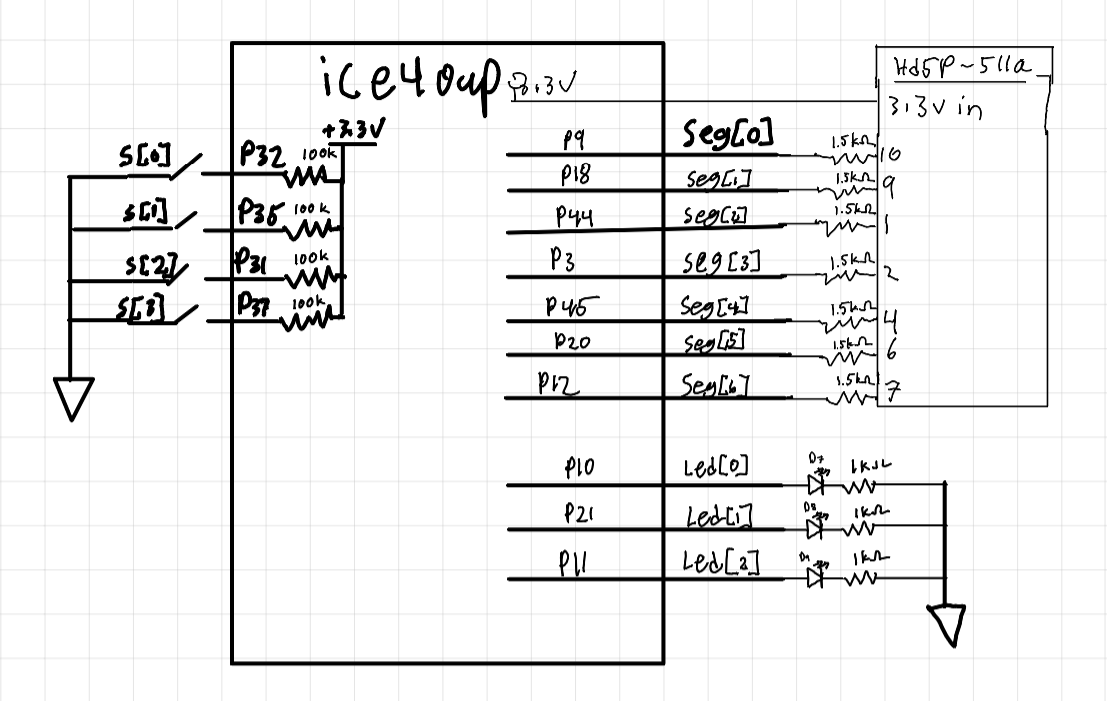 ice40up
3.3V
Hd5P-511a
3.3V in
+3.3V
S[0]
P32
100k
S[1]
P35
100k
S[2]
P31
100k
S[3]
P37
100k
P9
Seg[0]
1.5kΩ
10
P18
Seg[1]
1.5kΩ
9
P44
Seg[2]
1.5kΩ
1
P3
Seg[3]
1.5kΩ
2
P45
Seg[4]
1.5kΩ
4
P20
Seg[5]
1.5kΩ
6
P12
Seg[6]
1.5kΩ
7
P10
Led[0]
D7
1kΩ
P21
Led[1]
D8
1kΩ
P11
Led[2]
1kΩ